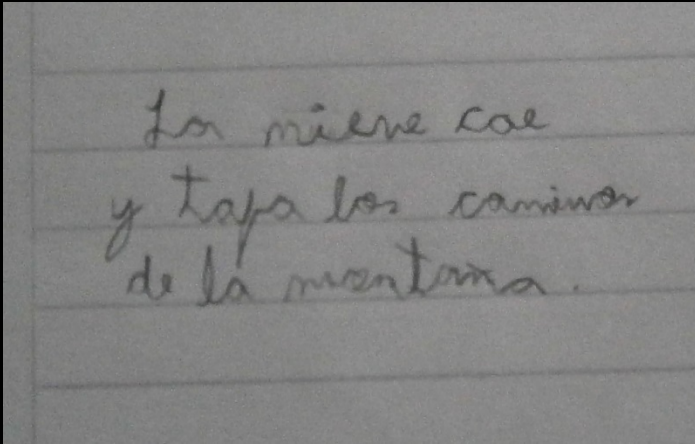 La nieve cae
y tapa los caminos
de la montaña.